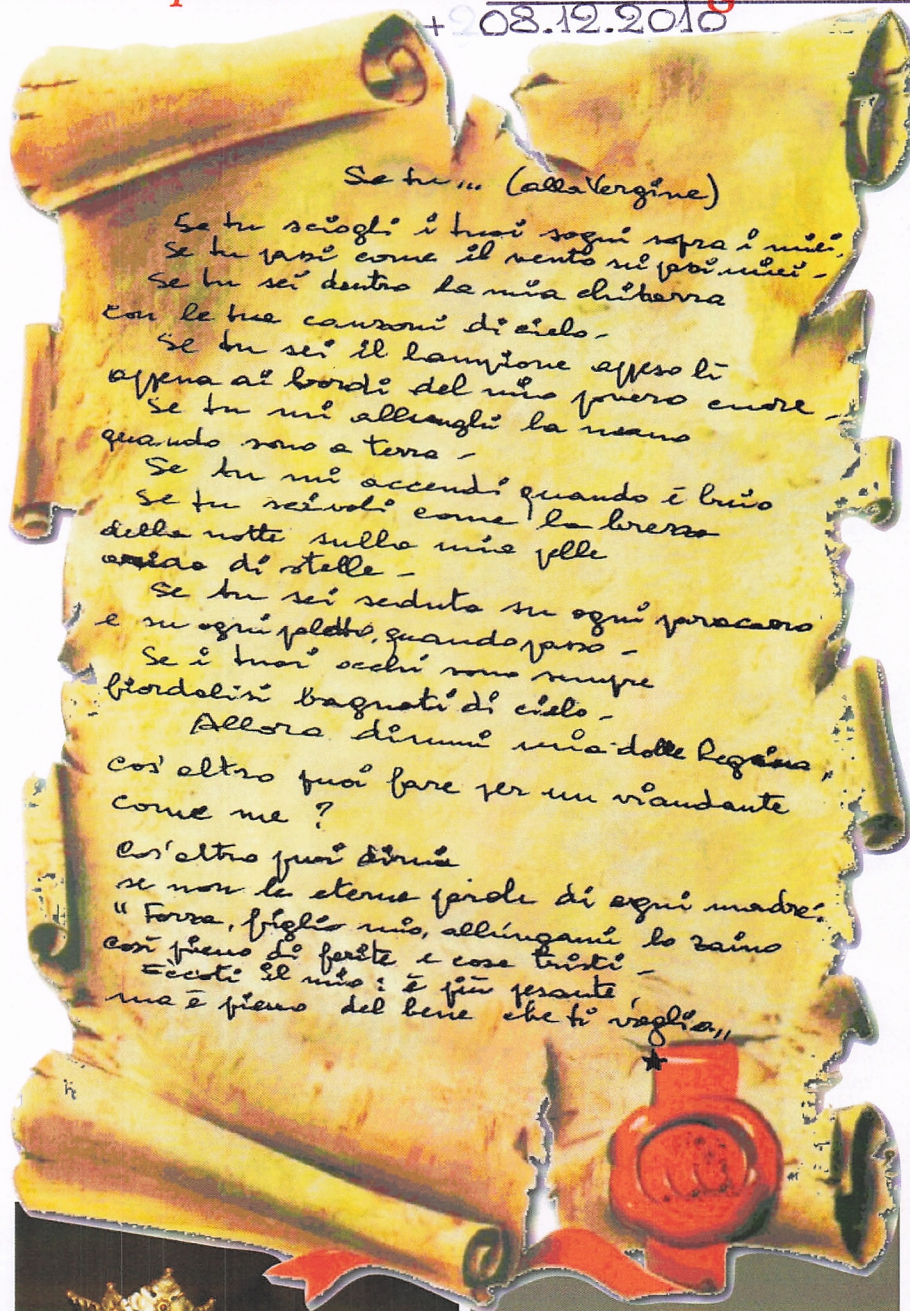 + 08.12.2010
Se tu... (alla Vergine)
Se tu sciogli i tuoi sogni sopra i miei.
Se tu passi come il vento sui passi miei -
Se tu sei dentro la mia chitarra
con le tue canzoni di cielo -
Se tu sei il lampione appeso lì
appena ai bordi del mio povero cuore -
Se tu mi allunghi la mano
quando sono a terra -
Se tu mi accendi quando è buio
Se tu scivoli come la brezza
della notte sulla mia pelle
di stelle -
Se tu sei seduta su ogni paracarro
e su ogni paletto, quando passo -
Se i tuoi occhi sono sempre
fiordalisi bagnati di cielo -
Allora dimmi mia dolce Regina,
cos'altro puoi fare per un viandante
come me ?
Cos'altro puoi dirmi
se non le eterne parole di ogni madre:
" Forza, figlio mio, allungami lo zaino
così pieno di ferite e cose tristi -
Eccoti il mio: è più pesante,
ma è pieno del bene che ti voglio „